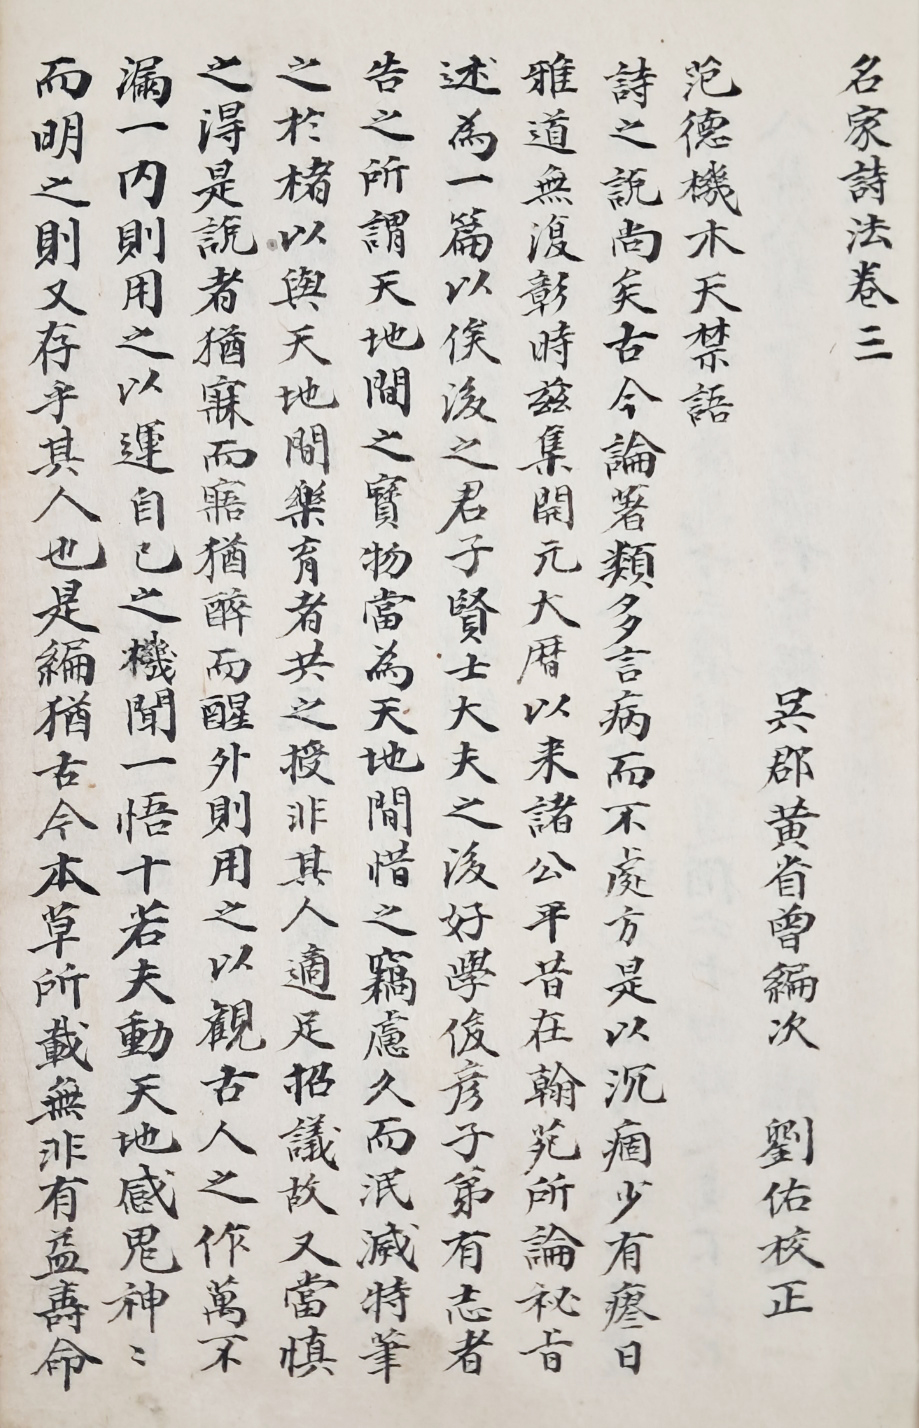 名家詩法卷三
吳郡黄省曾編次　劉佑校正
范德機木天禁語
詩之説尚矣古今論著類多言病而不處方是以沉痼少有瘳日
雅道無復彰時兹集開元大暦以来諸公平昔在翰苑所論祕旨
述為一篇以俟後之君子賢士大夫之後好學俊彦子弟有志者
告之所謂天地間之寶物當為天地間惜之竊慮久而泯滅特筆
之於楮以與天地間樂育者共之授非其人適足招議故又當慎
之得是說者猶寐而寤猶醉而醒外則用之以觀古人之作萬不
漏一内則用之以運自己之機聞一悟十若夫動天地感鬼神〻
而明之則又存乎其人也是編猶古今本草所載無非有益壽命